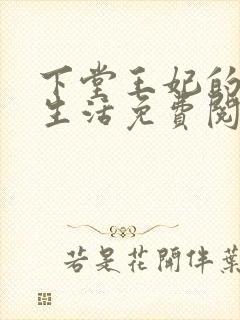 下堂王妃的
生活免費閱
若是花開伴葉